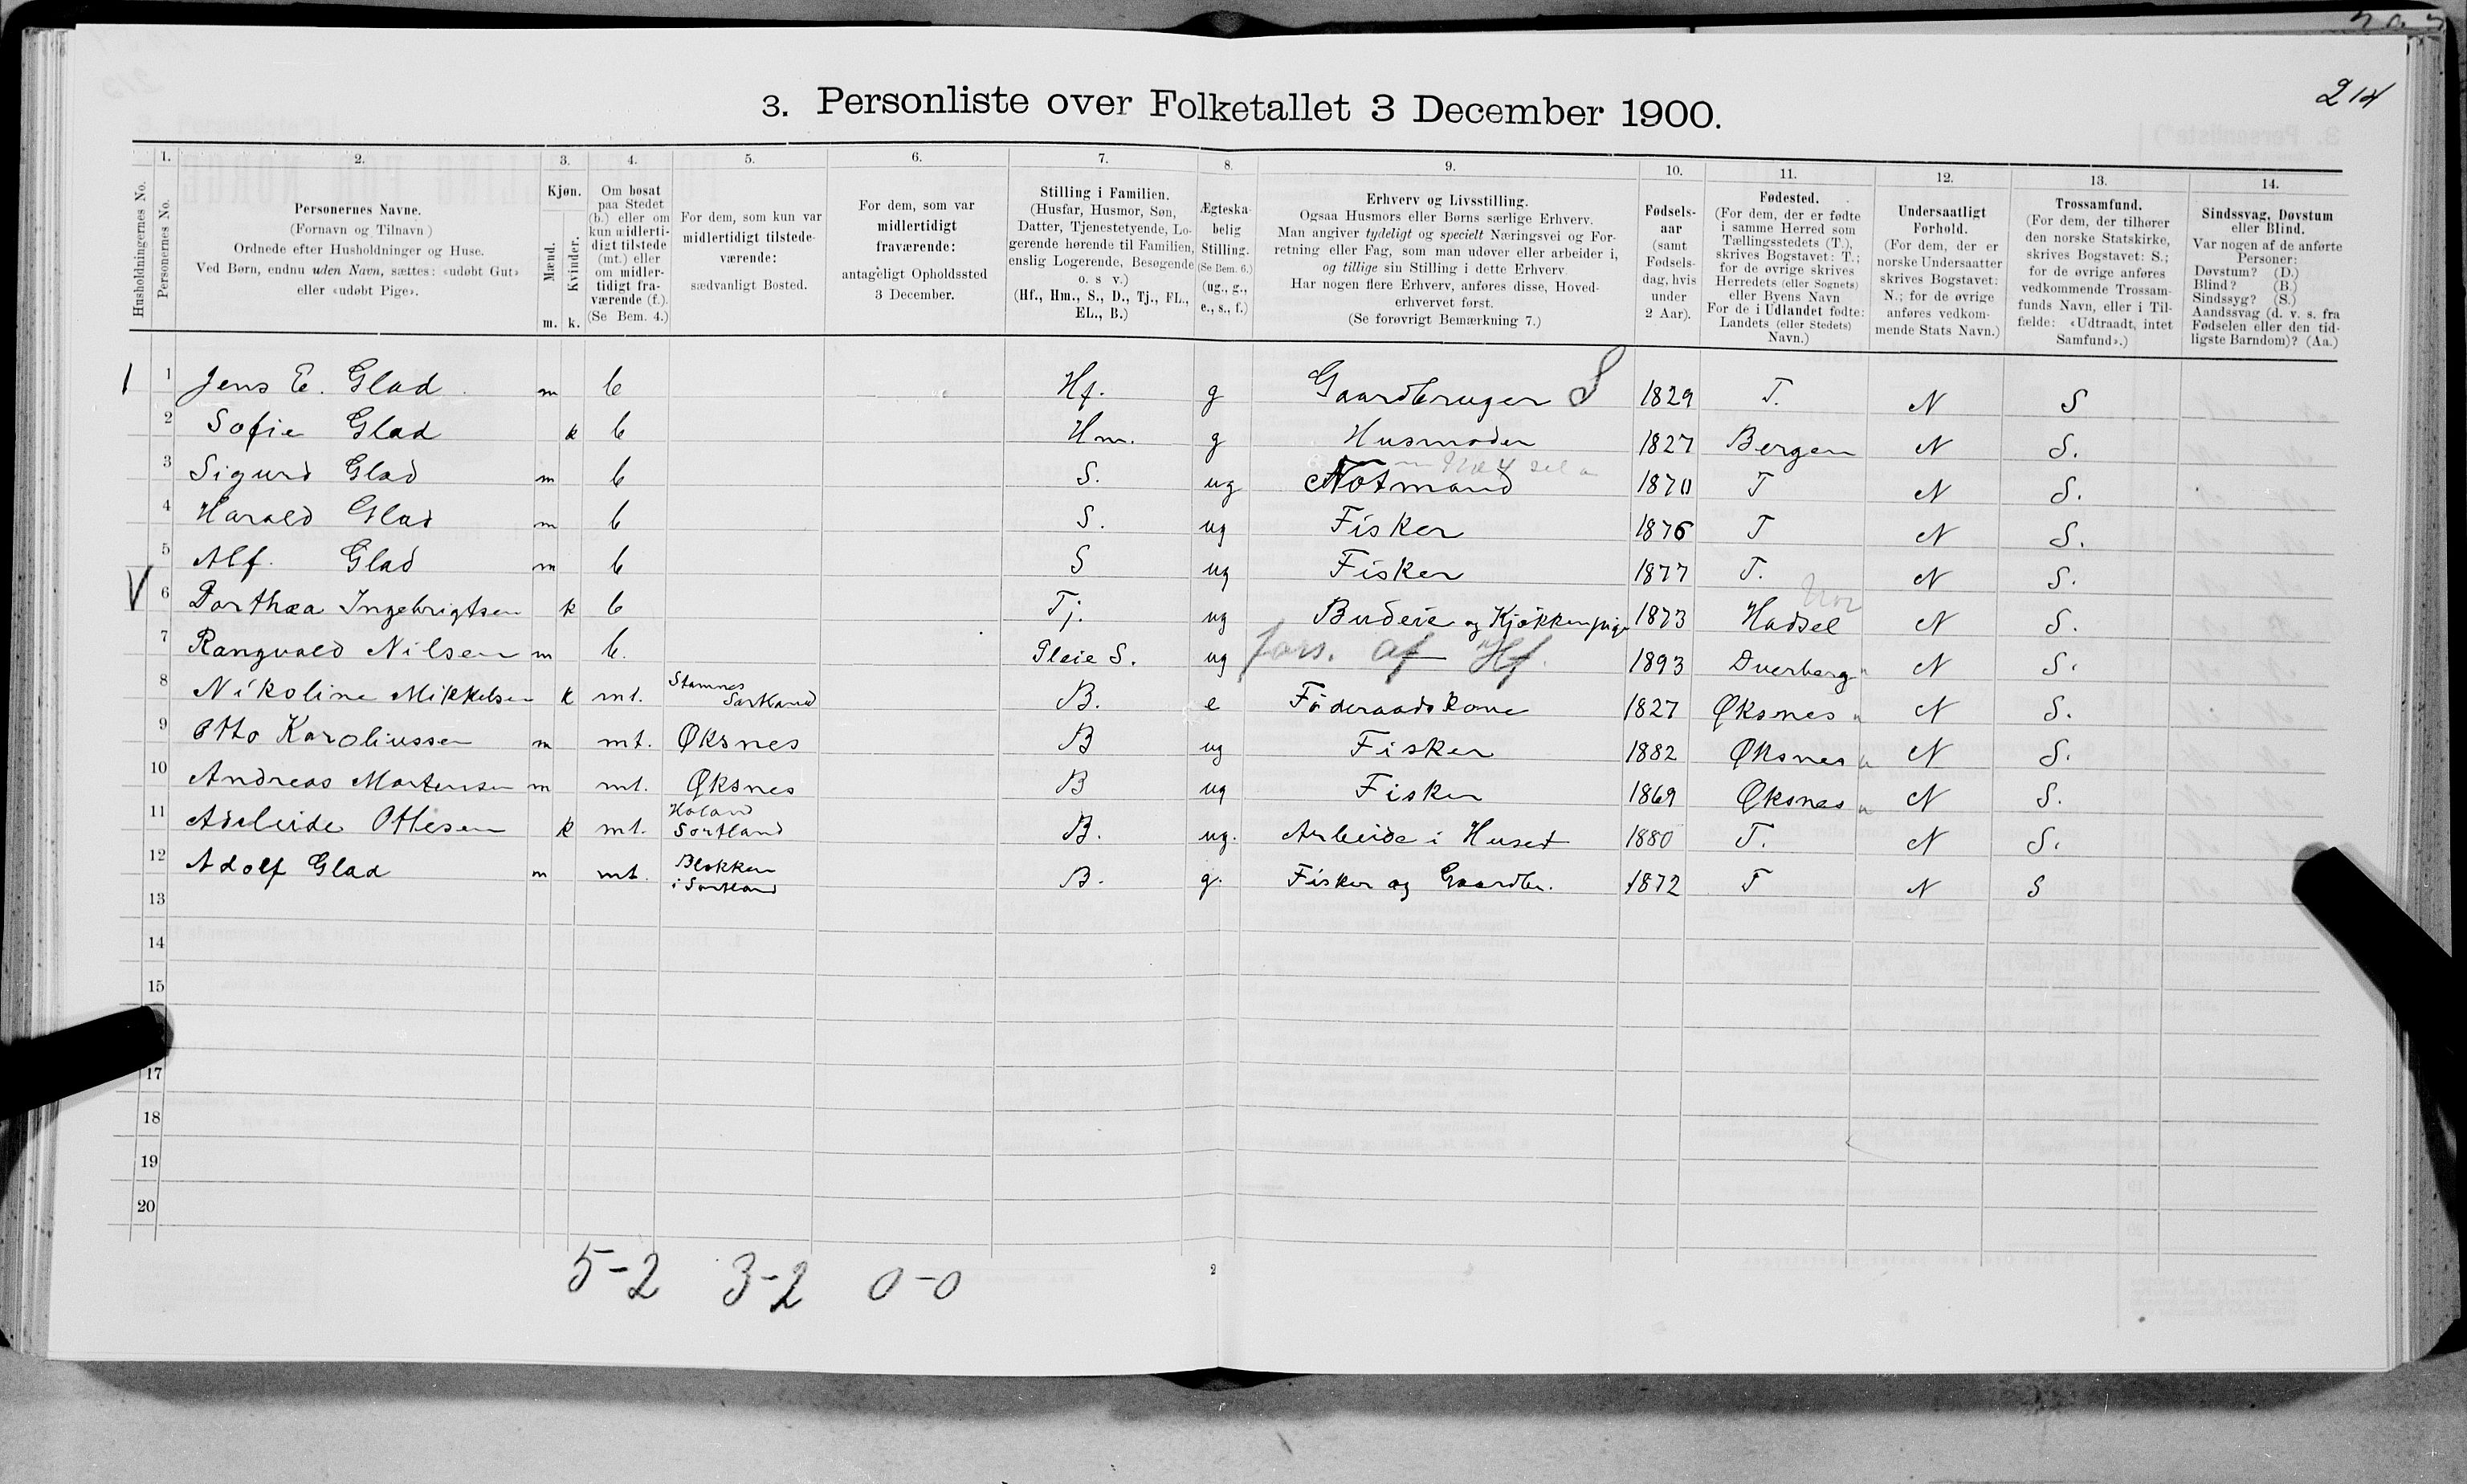 214
3. Personliste over Folketallet 3 December 1900.
1. 2. 3. 4. 5. 6. 7. 8. 9. 10. 11. 12. 13. 14.
Husholdningernes No.
Personernes No.
Personernes Navne.
(Fornavn og Tilnavn)
Ordnede efter Husholdninger og Huse.
Ved Børn, endnu uden Navn, sættes: «udøbt Gut»
eller «udøbt Pige».
Kjøn.
Mænd.
Kvinder.
m. k.
Om bosat
paa Stedet
(b.) eller om
kun midlerti-
digt tilstede
(mt.) eller
om midler-
tidigt fra-
værende (f.).
(Se Bem. 4.)
For dem, som kun var
midlertidigt tilstede-
værende:
sædvanligt Bosted.
For dem, som var
midlertidigt
fraværende:
antageligt Opholdssted
3 December.
Stilling i Familien.
(Husfar, Husmor, Søn,
Datter, Tjenestetyende, Lo-
gerende hørende til Familien,
enslig Logerende, Besøgende
o. s v.)
(Hf., Hm., S., D., Tj., FL.,
EL., B.)
Ægteska-
belig
Stilling.
(Se Bem. 6.)
(ug., g.,
e., s., f.)
Erhverv og Livsstilling.
Ogsaa Husmors eller Børns særlige Erhverv.
Man angiver tydeligt og specielt Næringsvei og For-
retning eller Fag, som man udøver eller arbeider i,
og tillige sin Stilling i dette Erhverv.
Har nogen flere Erhverv, anføres disse, Hoved-
erhvervet først.
(Se forøvrigt Bemærkning 7.)
Fødsels-
aar
(samt
Fødsels-
dag, hvis
under
2 Aar).
Fødested.
(For dem, der er fødte
i samme Herred som
Tællingsstedets (T.),
skrives Bogstavet: T.;
for de øvrige skrives
Herredets (eller Sognets)
eller Byens Navn
For de i Udlandet fødte:
Landets (eller Stedets)
Navn.)
Undersaatligt
Forhold.
(For dem, der er
norske Undersaatter
skrives Bogstavet:
N.; for de øvrige
anføres vedkom-
mende Stats Navn.)
Trossamfund.
(For dem, der tilhører
den norske Statskirke,
skrives Bogstavet: S.;
for de øvrige anføres
vedkommende Trossam-
funds Navn, eller i Til-
fælde: «Udtraadt, intet
Samfund».)
Sindssvag, Døvstum
eller Blind.
Var nogen af de anførte
Personer:
Døvstum? (D.)
Blind? (B.)
Sindssyg? (S.)
Aandssvag (d. v. s. fra
Fødselen eller den tid-
ligste Barndom)? (Aa.)
1 1 Jens E. Glad m b Hf. g Gaardbruger S 1829 T. N S
2 Sofie Glad k b Hm. g Husmoder 1827 Bergen N S.
3 Sigurd Glad m b S. ug Notmand 1870 T N S.
4 Harald Glad m b S. ug Fisker 1876 T N S.
5 Alf. Glad m b S ug Fisker 1877 T. N S.
V 6 Dorthea Ingebrigtsen k b Tj. ug Budeie og Kjøkkenpige 1873 Hadsel N S.
7 Rangvald Nilsen m b. Pleie S. ug fors. af Hf. 1893 Dverberg N S.
8 Nikoline Mikkelsen k mt. Stamnes Sortland B. e Føderaadskone 1827 Øksnes N S.
9 Otto Karoliussen m mt. Øksnes B ug Fisker 1882 Øksnes N S.
10 Andreas Mortensen m mt. Øksnes B ug Fisker 1869 Øksnes N S.
11 Adeleide Ottesen k mt. Holand Sortland B. ug. Arbeide i Huset 1880 T. N S.
12 Adolf Glad m mt. Blokken i Sortland B. g. Fisker og Gaardbr. 1872 T N S
13
14
15
17
18
19
20
5-2 3-2 0-0
2